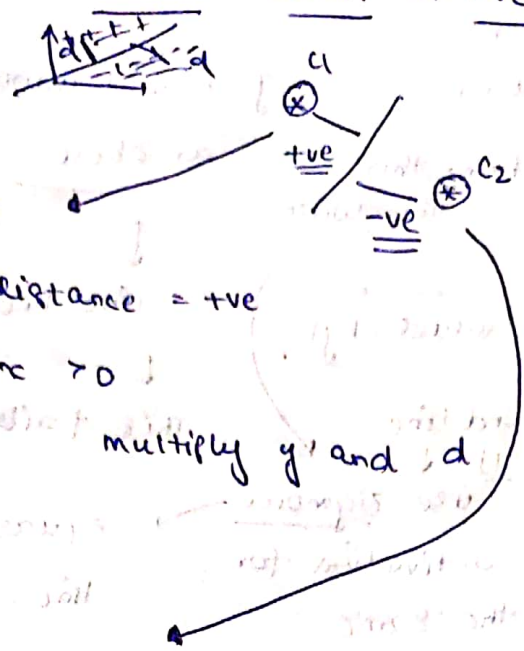 d + + + +
- - - - d
C1
+ve
C2
-ve
distance = +ve
x > 0
multiply y and d